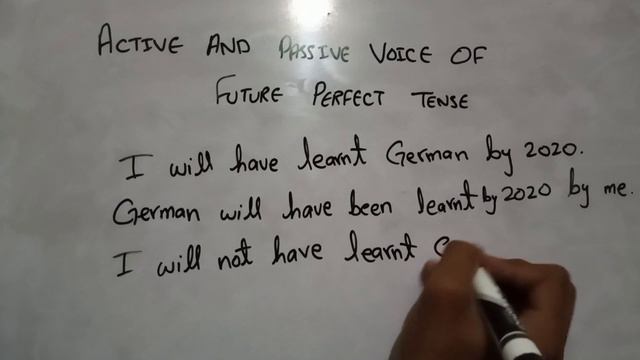 ACTIVE AND PASSIVE VOICE OF
FUTURE PERFECT TENSE
I will have learnt German by 2020.
German will have been learnt by 2020 by me.
I will not have learnt G